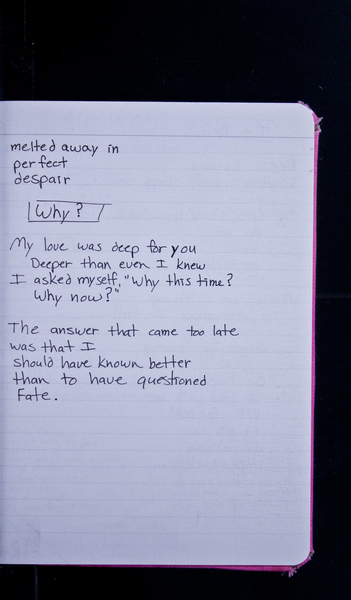 melted away in
perfect
despair
Why?
My love was deep for you
Deeper than even I knew
I asked myself, "Why this time?
Why now?"
The answer that came too late
was that I
should have known better
than to have questioned
Fate.